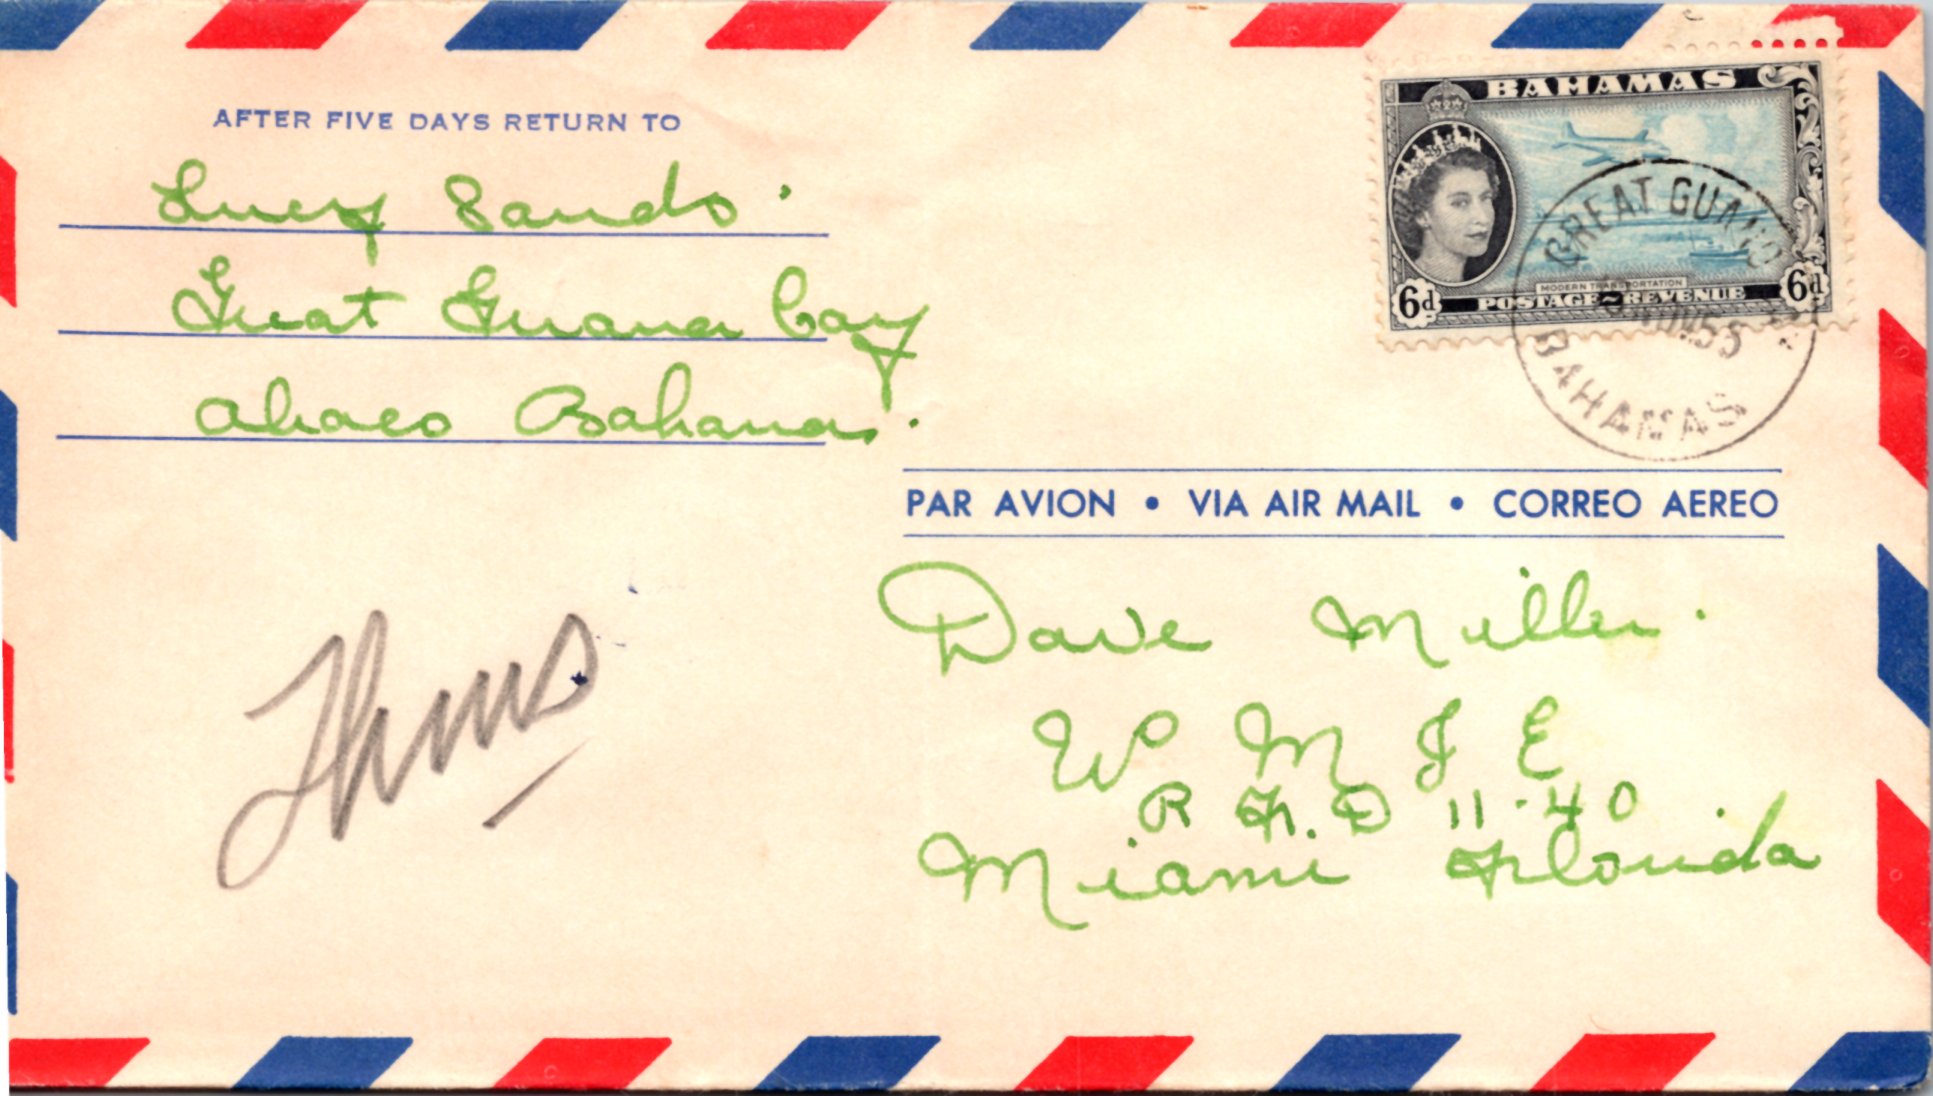 AFTER FIVE DAYS RETURN TO
Lucy Sands.
Great Guana Cay
Abaco Bahamas.
BAHAMAS
MODERN TRANSPORTATION
6d POSTAGE~REVENUE 6d
GREAT GUANA
BAHAMAS
PAR AVION • VIA AIR MAIL • CORREO AEREO
Dave Miller.
W M I E
R F. D 11-40
Miami Florida